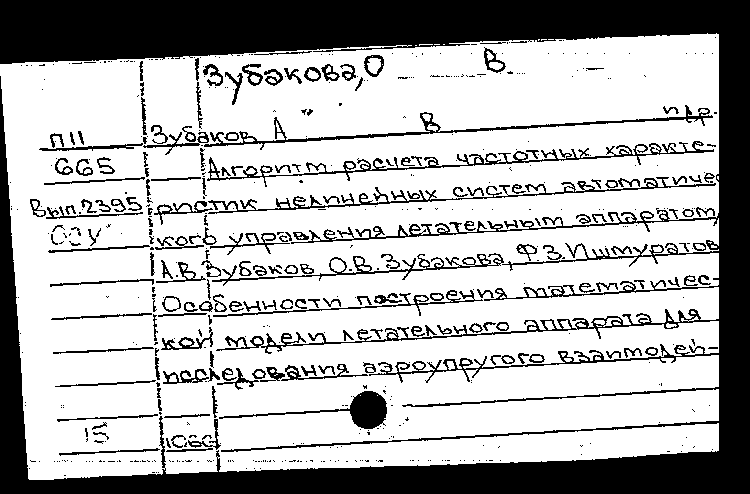 Зубакова, О В.
П11 Зубаков, А В и др.
665 Алгоритм расчета частотных характе-
Вып.2395 ристик нелинейных систем автоматичес
кого управления летательным аппаратом/
А.В.Зубаков, О.В.Зубакова, Ф.З.Ишмуратов
Особенности построения математичес-
кой модели летательного аппарата для
исследования аэроупругого взаимодей-
15 1066